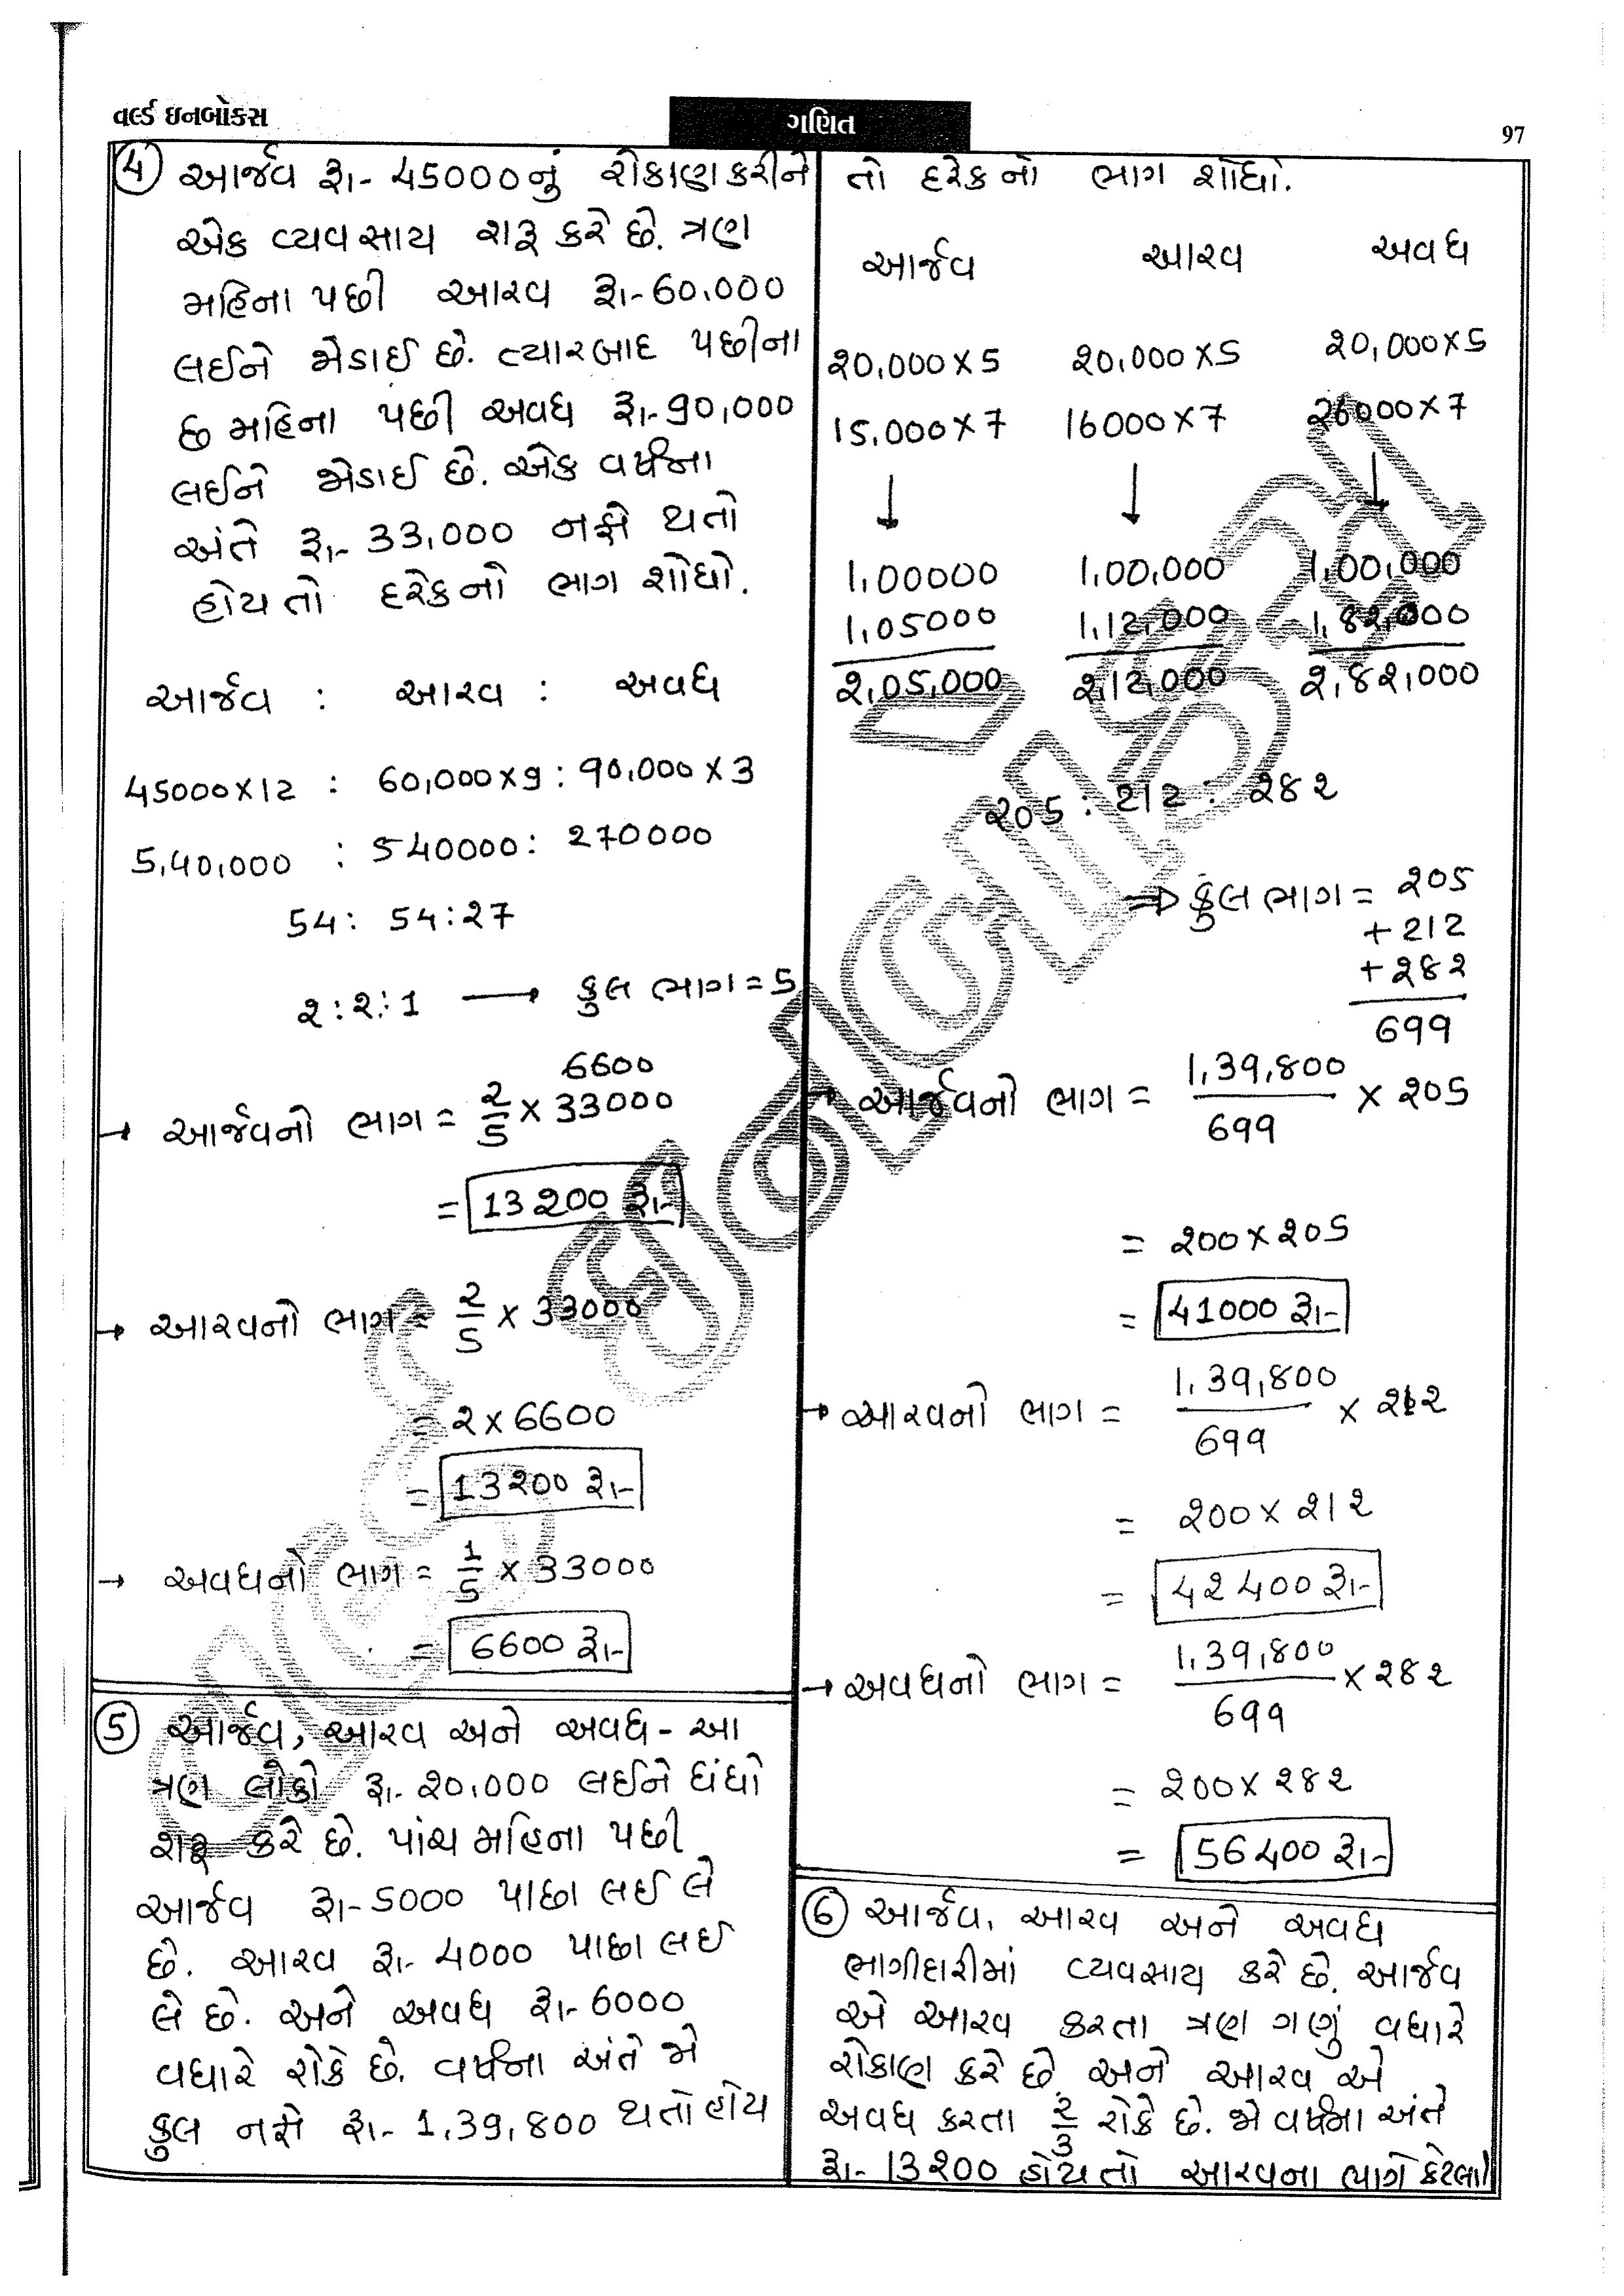 વર્લ્ડ ઇનબોક્સ
ગણિત
97
(4) આર્જવ રૂા- 45000નું રોકાણ કરીને
એક વ્યવસાય શરૂ કરે છે. ત્રણ
મહિના પછી આરવ રૂા-60,000
લઈને જોડાઈ છે. ત્યારબાદ પછીના
છ મહિના પછી અવધ રૂા-90,000
લઈને જોડાઈ છે. એક વર્ષના
અંતે રૂા- 33,000 નફો થતો
હોય તો દરેકનો ભાગ શોધો.
આર્જવ : આરવ : અવધ
45000×12 : 60,000×9 : 90,000×3
5,40,000 : 540000 : 270000
54 : 54 : 27
2 : 2 : 1 → કુલ ભાગ = 5
6600
→ આર્જવનો ભાગ = 2/5 × 33000
= 13200 રૂા-
→ આરવનો ભાગ = 2/5 × 33000
= 2 × 6600
= 13200 રૂા-
→ અવધનો ભાગ = 1/5 × 33000
= 6600 રૂા-
(5) આર્જવ, આરવ અને અવધ - આ
ત્રણ લોકો રૂા- 20,000 લઈને ધંધો
શરૂ કરે છે. પાંચ મહિના પછી
આર્જવ રૂા-5000 પાછા લઈ લે
છે. આરવ રૂા- 4000 પાછા લઈ
લે છે. અને અવધ રૂા-6000
વધારે રોકે છે. વર્ષના અંતે જો
કુલ નફો રૂા- 1,39,800 થતો હોય
તો દરેકનો ભાગ શોધો.
આર્જવ આરવ અવધ
20,000×5 20,000×5 20,000×5
15,000×7 16000×7 26000×7
↓ ↓ ↓
1,00000 1,00,000 1,00,000
1,05000 1,12,000 1,82,000
2,05,000 2,12,000 2,82,000
205 : 212 : 282
⇒ કુલ ભાગ = 205
+ 212
+ 282
699
→ આર્જવનો ભાગ = 1,39,800/699 × 205
= 200 × 205
= 41000 રૂા-
→ આરવનો ભાગ = 1,39,800/699 × 212
= 200 × 212
= 42400 રૂા-
→ અવધનો ભાગ = 1,39,800/699 × 282
= 200 × 282
= 56400 રૂા-
(6) આર્જવ, આરવ અને અવધ
ભાગીદારીમાં વ્યવસાય કરે છે. આર્જવ
એ આરવ કરતા ત્રણ ગણું વધારે
રોકાણ કરે છે. અને આરવ એ
અવધ કરતા 2/3 રોકે છે. જો વર્ષના અંતે
રૂા- 13200 હોય તો આરવના ભાગે કેટલા